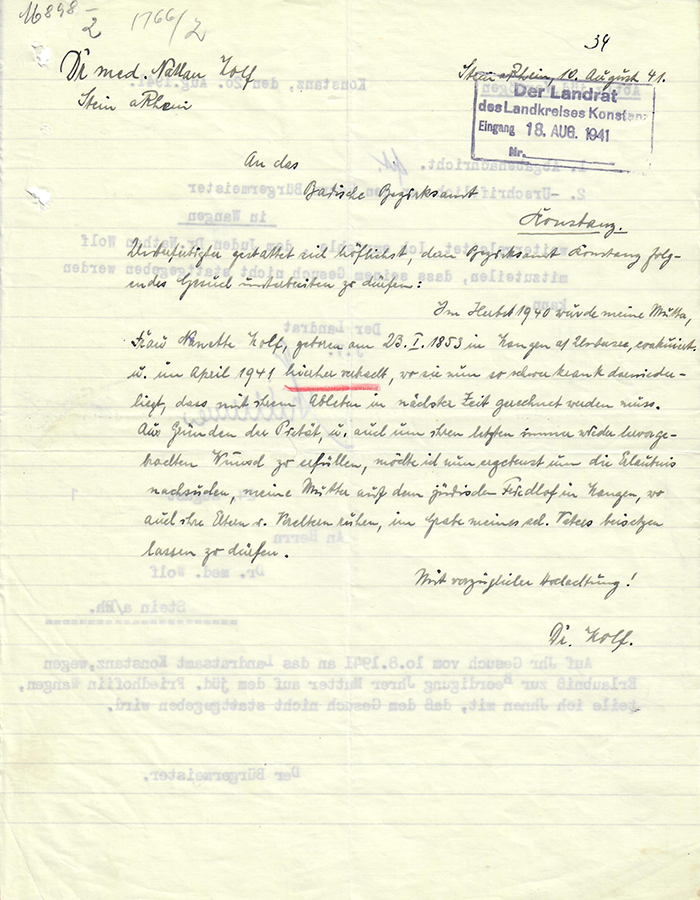 16898-
2
1766/2
34
Dr med. Nathan Wolf
Stein a Rhein
Stein a Rhein, 10. August 41.
Der Landrat
des Landkreises Konstanz
Eingang 18. AUG. 1941
Nr.
An das
Badische Bezirksamt
Konstanz.
Unterfertigter gestattet sich höflichst, dem Bezirksamt Konstanz folg-
endes Gesuch unterbreiten zu dürfen:
Im Herbst 1940 wurde meine Mutter,
Frau Nanette Wolf, geboren am 23. I. 1853 in Wangen a/ Untersee, evakuiert
u. im April 1941 hierher verbracht, wo sie nun so schwer krank darnieder-
liegt, dass mit ihrem Ableben in nächster Zeit gerechnet werden muss.
Aus Gründen der Pietät, u. auch um ihren letzten immer wieder hervorge-
brachten Wunsch zu erfüllen, möchte ich nun ergebenst um die Erlaubnis
nachsuchen, meine Mutter auf dem jüdischen Friedhof in Wangen, wo
auch ihre Eltern u. Voreltern ruhen, im Grabe meines sel. Vaters beisetzen
lassen zu dürfen.
Mit vorzüglicher Hochachtung!
Dr. Wolf.
Abt.
Konstanz, den 20. Aug. 1941.
1. Abgabenachricht.
2. -Urschriftlich Bürgermeister
in Wangen
weiter dem Juden Dr. Nathan Wolf
mitzuteilen, dass seinem Gesuch nicht stattgegeben werden
kann.
Der Landrat
An Herrn
Dr. med. Wolf
Stein a/Rh.
Auf Ihr Gesuch vom 10.8.1941 an das Landratsamt Konstanz, wegen
Erlaubniß zur Beerdigung Ihrer Mutter auf dem jüd. Friedhof in Wangen,
teile ich Ihnen mit, daß dem Gesuch nicht stattgegeben wird.
Der Bürgermeister.